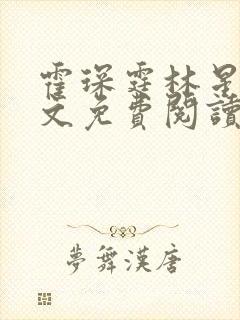 霍琛霆林星
文免費閱讀
夢舞漢唐